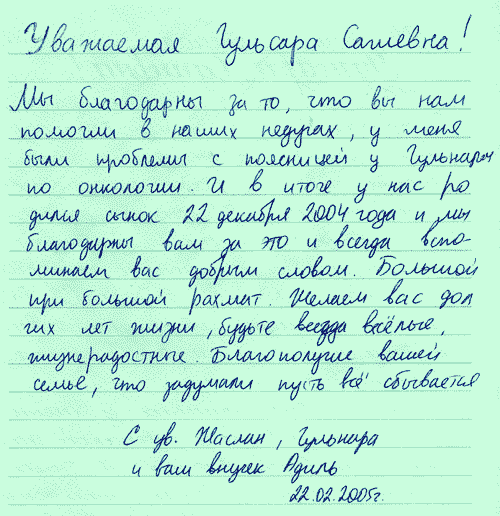 Уважаемая Гульсара Сагиевна!
Мы благодарны за то, что вы нам
помогли в наших недугах, у меня
были проблемы с поясницей у Гульнары
по онкологии. И в итоге у нас ро
дился сынок 22 декабря 2004 года и мы
благодарны вам за это и всегда вспо-
минаем вас добрым словом. Большой
при большой рахмат. Желаем вас дол
гих лет жизни, будьте всегда весёлые,
жизнерадостные. Благополучие вашей
семье, что задумали пусть всё сбывается
С ув. Жаслан, Гульнара
и ваш внучек Адиль
22.02.2005г.